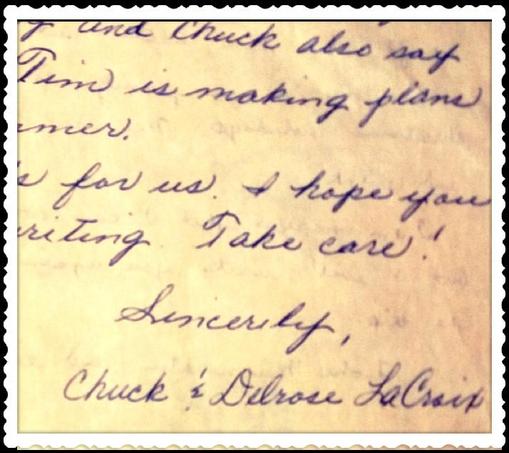 y and Chuck also say
Tim is making plans
mer.
s for us. I hope you
riting. Take care!
Sincerily,
Chuck & Delrose LaCroix